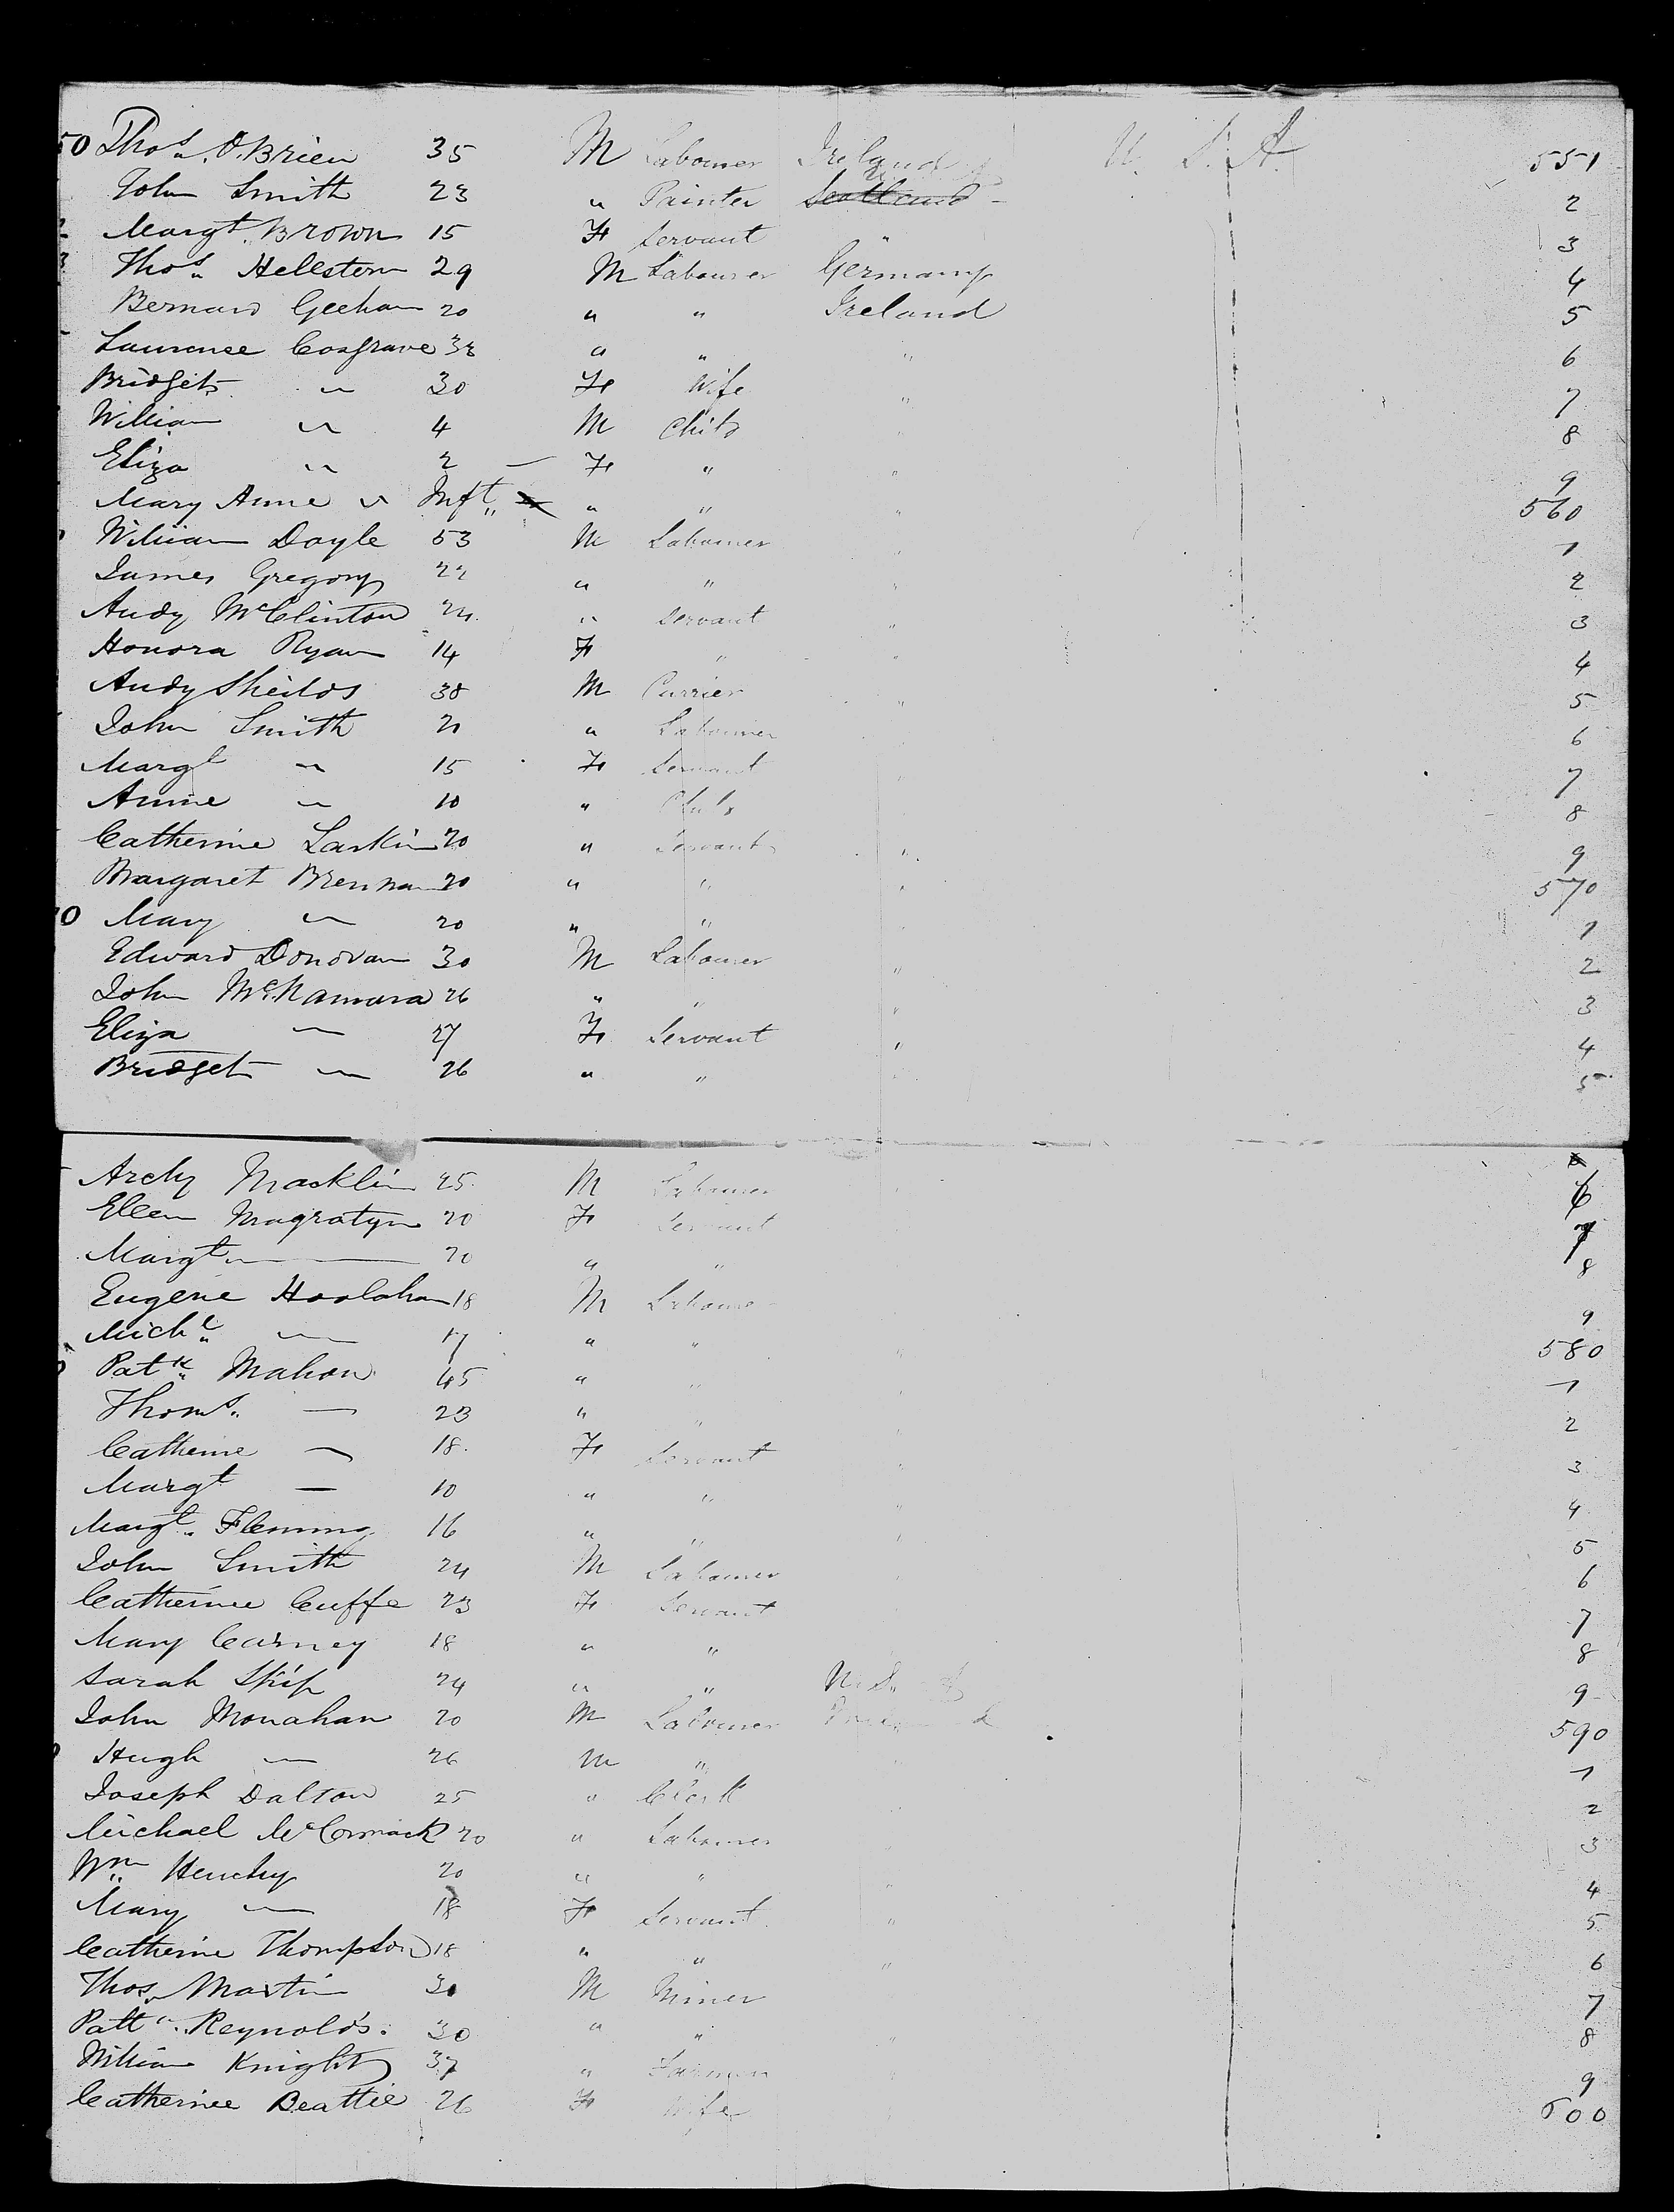 50 Thos. O.Brien 35 M Labourer Ireland U. S. A. 551
John Smith 23 " Painter Scotland 2
Margt. Brown 15 F Servant " 3
Thos. Hellstern 29 M Labourer Germany 4
Bernard Geehan 20 " " Ireland 5
Laurence Cosgrave 33 " " " 6
Bridget " 30 F Wife " 7
William " 4 M Child " 8
Eliza " 2 F " " 9
Mary Anne " Inft. " " " 560
William Doyle 53 M Labourer " 1
James Gregory 22 " " " 2
Andy McClinton 24 " Servant " 3
Honora Ryan 14 F " " 4
Andy Sheilds 38 M Currier " 5
John Smith 21 " Labourer " 6
Margt " 15 F Servant " 7
Annie " 10 " Child 8
Catherine Larkin 20 " Servant " 9
Margaret Brennan 20 " " " 570
Mary " 20 " " " 1
Edward Donovan 30 M Labourer " 2
John McNamara 26 " " " 3
Eliza " 27 F Servant " 4
Bridget " 26 " " 5
Archy Macklin 25 M Labourer 6
Ellen 20 F Servant 7
Margt " 20 " " 8
Eugene Hoolahan 18 M Labourer 9
Michl. " 17 " " " 580
Patk. Mahon 45 " " " 1
Thoms. " 23 " " 2
Catherine " 18 F Servant " 3
Margt " 10 " " " 4
Margt. Fleming 16 " " " 5
John Smith 24 M Labourer 6
Catherine Cuffe 23 F Servant 7
Mary Carney 18 " " 8
Sarah Skip 24 " " U.S. 9
John Monahan 20 M Labourer 590
Hugh " 26 M " 1
Joseph Dalton 25 " Clerk 2
Michael McCormack 20 " Labourer 3
Wm. Henchy 20 " " " 4
Mary " 18 F Servant " 5
Catherine Thompson 18 " " " 6
Thos. Martin 30 M Miner 7
Patt. Reynolds. 30 " " " 8
William Knight 37 " 9
Catherine Beattie 26 F Wife 600